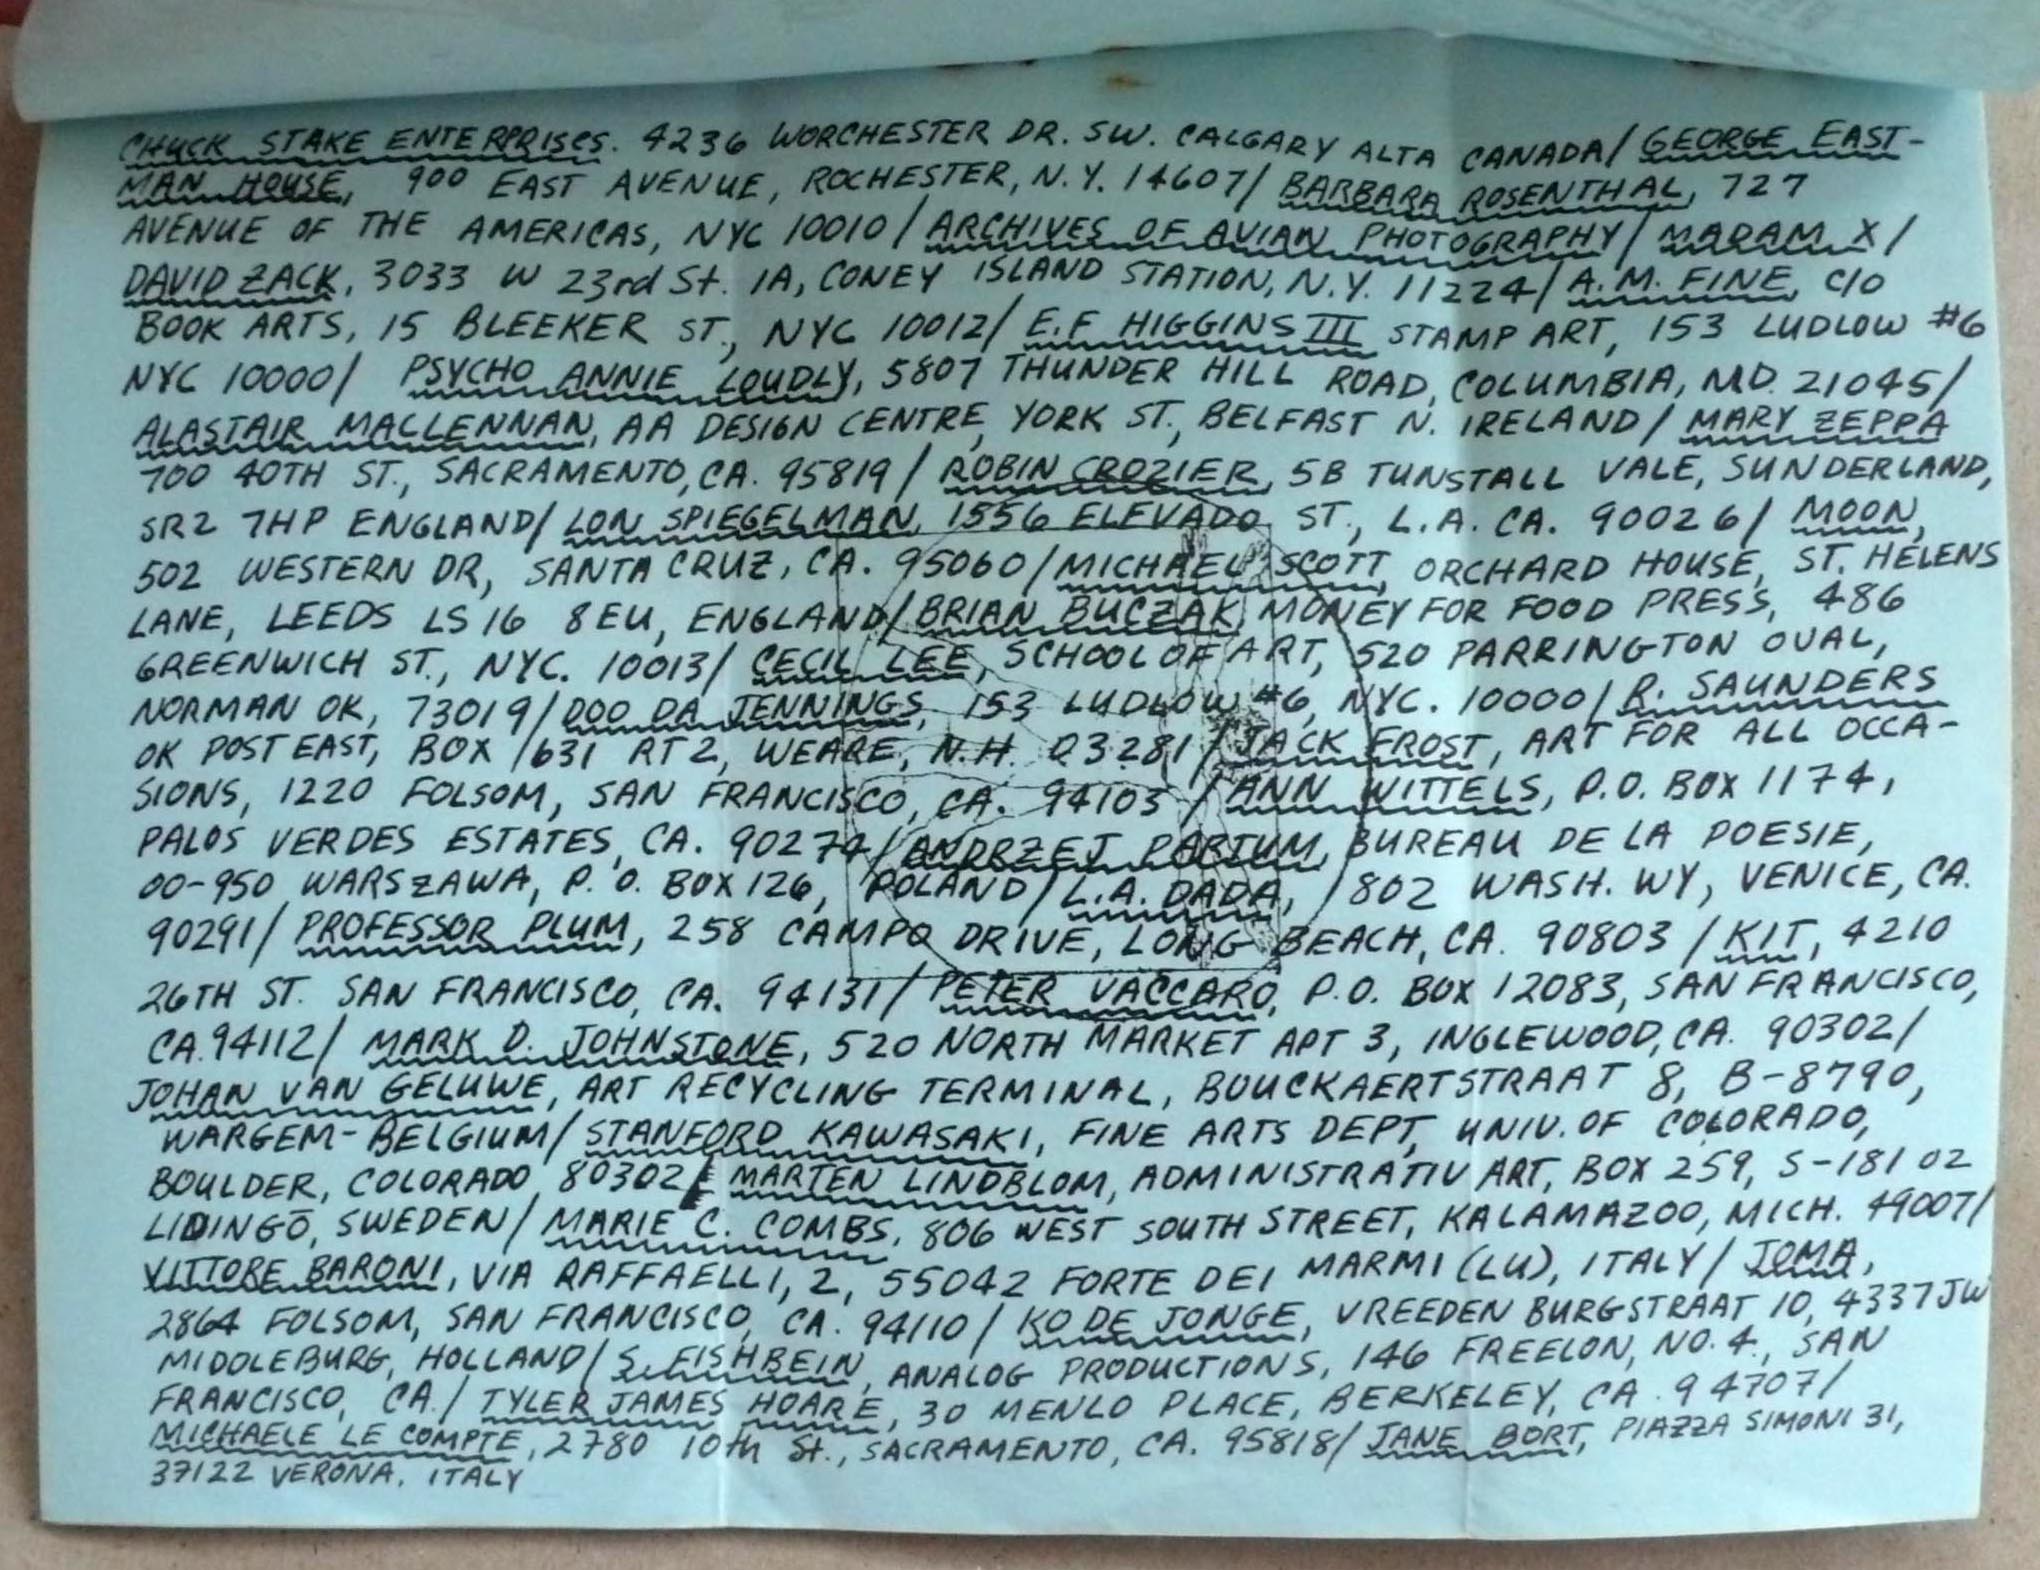 CHUCK STAKE ENTERPRISES. 4236 WORCHESTER DR. SW. CALGARY ALTA CANADA/ GEORGE EAST-
MAN HOUSE, 900 EAST AVENUE, ROCHESTER, N.Y. 14607/ BARBARA ROSENTHAL, 727
AVENUE OF THE AMERICAS, NYC 10010/ ARCHIVES OF AVIAN PHOTOGRAPHY/ MADAM X/
DAVID ZACK, 3033 W 23rd St. 1A, CONEY ISLAND STATION, N.Y. 11224/ A.M. FINE, C/O
BOOK ARTS, 15 BLEEKER ST., NYC 10012/ E.F HIGGINS III STAMP ART, 153 LUDLOW #6
NYC 10000/ PSYCHO ANNIE LOUDLY, 5807 THUNDER HILL ROAD, COLUMBIA, MD. 21045/
ALASTAIR MACLENNAN, AA DESIGN CENTRE, YORK ST., BELFAST N. IRELAND/ MARY ZEPPA
700 40TH ST., SACRAMENTO, CA. 95819/ ROBIN CROZIER, 5B TUNSTALL VALE, SUNDERLAND,
SR2 7HP ENGLAND/ LON SPIEGELMAN, 1556 ELEVADO ST., L.A. CA. 90026/ MOON,
502 WESTERN DR, SANTA CRUZ, CA. 95060/ MICHAEL SCOTT, ORCHARD HOUSE, ST. HELENS
LANE, LEEDS LS16 8EU, ENGLAND/ BRIAN BUCZAK, MONEY FOR FOOD PRESS, 486
GREENWICH ST., NYC. 10013/ CECIL LEE, SCHOOL OF ART, 520 PARRINGTON OVAL,
NORMAN OK, 73019/ DOO DA JENNINGS, 153 LUDLOW #6, NYC. 10000/ R. SAUNDERS
OK POST EAST, BOX 1631 RT 2, WEARE, N.H. 03281/ JACK FROST, ART FOR ALL OCCA-
SIONS, 1220 FOLSOM, SAN FRANCISCO, CA. 94103/ ANN WITTELS, P.O. BOX 1174,
PALOS VERDES ESTATES, CA. 90274/ ANDRZEJ PARTUM, BUREAU DE LA POESIE,
00-950 WARSZAWA, P.O. BOX 126, POLAND/ L.A. DADA, 1802 WASH. WY, VENICE, CA.
90291/ PROFESSOR PLUM, 258 CAMPO DRIVE, LONG BEACH, CA. 90803/ KIT, 4210
26TH ST. SAN FRANCISCO, CA. 94131/ PETER VACCARO, P.O. BOX 12083, SAN FRANCISCO,
CA. 94112/ MARK D. JOHNSTONE, 520 NORTH MARKET APT 3, INGLEWOOD, CA. 90302/
JOHAN VAN GELUWE, ART RECYCLING TERMINAL, BOUCKAERTSTRAAT 8, B-8790,
WARGEM-BELGIUM/ STANFORD KAWASAKI, FINE ARTS DEPT, UNIV. OF COLORADO,
BOULDER, COLORADO 80302/ MARTEN LINDBLOM, ADMINISTRATIV ART, BOX 259, S-181 02
LIDINGŌ, SWEDEN/ MARIE C. COMBS, 806 WEST SOUTH STREET, KALAMAZOO, MICH. 49007/
VITTORE BARONI, VIA RAFFAELLI, 2, 55042 FORTE DEI MARMI (LU), ITALY/ JOMA,
2864 FOLSOM, SAN FRANCISCO, CA. 94110/ KO DE JONGE, VREEDEN BURGSTRAAT 10, 4337JW
MIDDLEBURG, HOLLAND/ S. FISHBEIN, ANALOG PRODUCTIONS, 146 FREELON, NO. 4, SAN
FRANCISCO, CA./ TYLER JAMES HOARE, 30 MENLO PLACE, BERKELEY, CA. 94707/
MICHAELE LE COMPTE, 2780 10th St., SACRAMENTO, CA. 95818/ JANE BORT, PIAZZA SIMONI 31,
37122 VERONA, ITALY